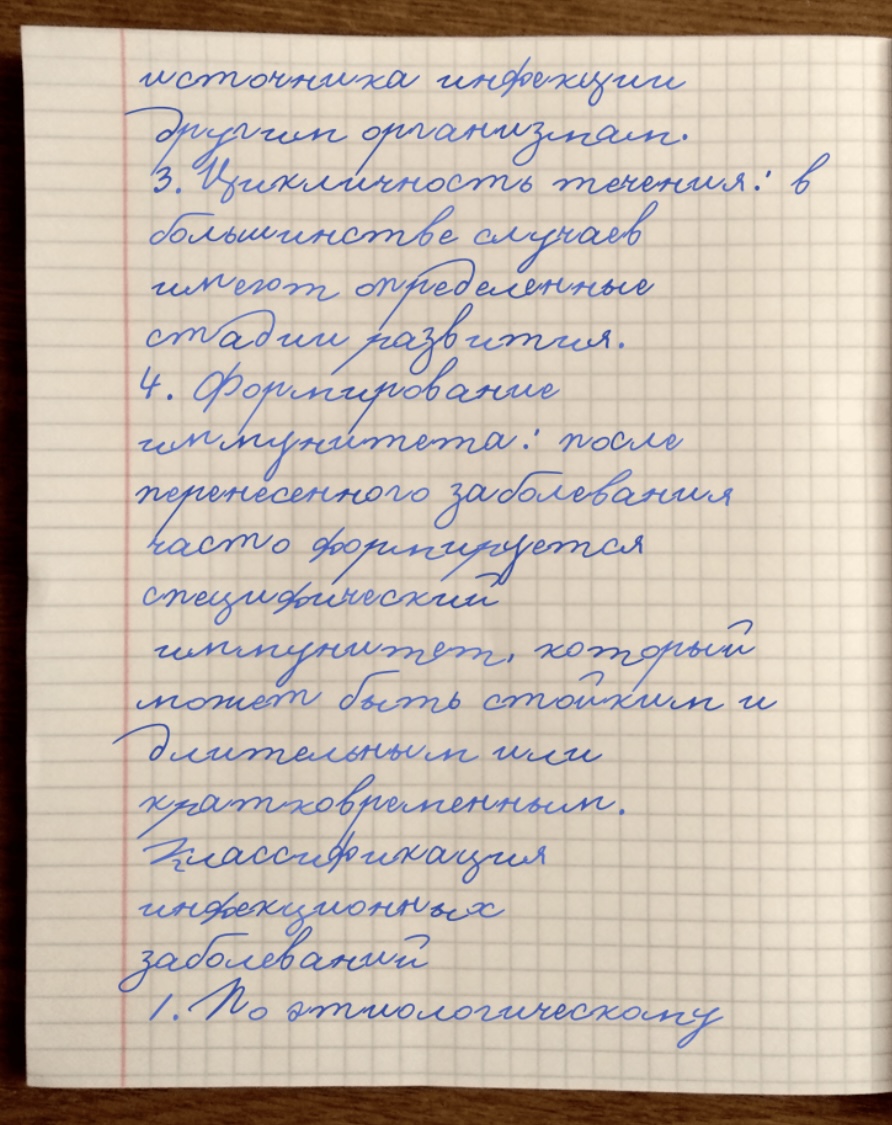 источника инфекции
другим организмам.
3. Цикличность течения: в
большинстве случаев
имеют определенные
стадии развития.
4. Формирование
иммунитета: после
перенесенного заболевания
часто формируется
специфический
иммунитет, который
может быть стойким и
длительным или
кратковременным.
Классификация
инфекционных
заболеваний
1. По этиологическому